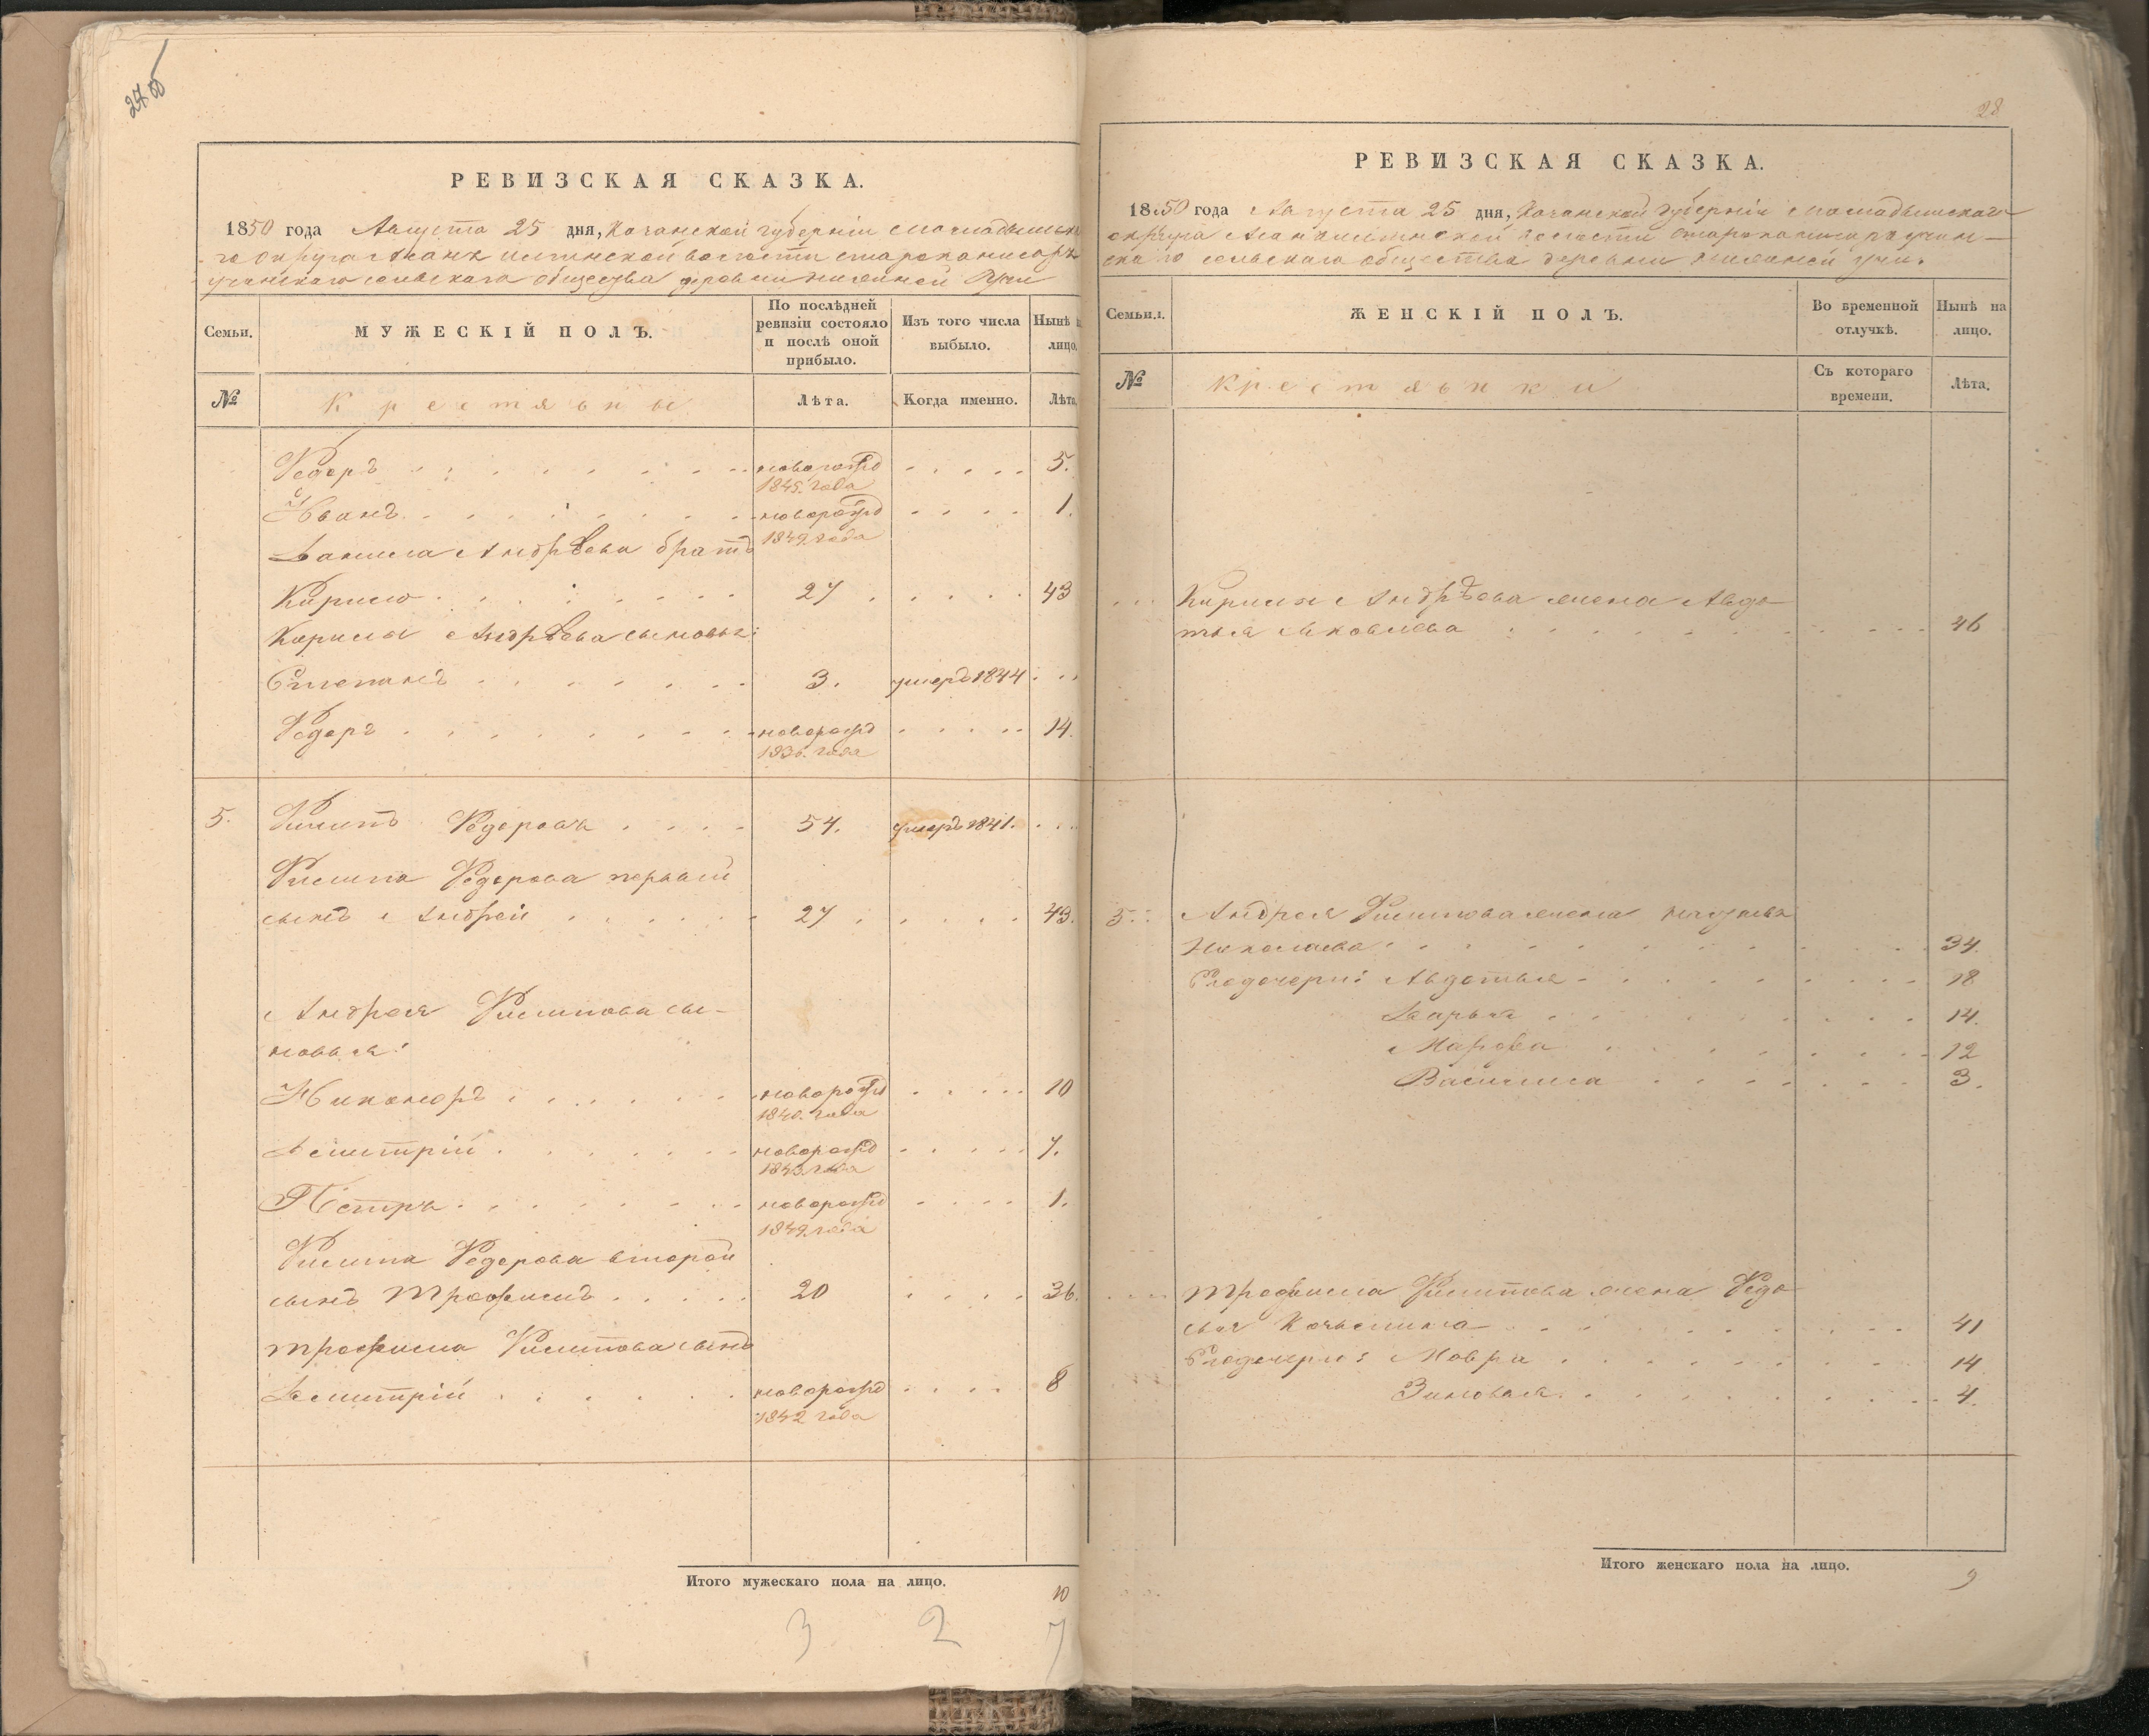 27об
РЕВИЗСКАЯ СКАЗКА.
1850 года Августа 25 дня, Казанской губерніи Мамадышска
го округа волости
сельскаго общества деревни Учи
Семьи.
МУЖЕСКІЙ ПОЛЪ.
По послѣдней ревизіи состояло и послѣ оной прибыло.
Изъ того числа выбыло.
Нынѣ на лицо.
№
Крестьяны
Лѣта.
Когда именно.
Лѣта.
Федоръ новорожд 1845. года 5.
Иванъ новорожд 1849 года 1.
Данила Андрѣева братъ
Кирило 27 43
Кирилы Андрѣева сыновья:
Степанъ 3. умеръ 1844
Федоръ новорожд 1836. года 14.
5. Филипъ Федоровъ 54. умеръ 1841.
Филипа Федорова первый
сынъ Андрей 27 43.
Андрея Филипова сы-
новья:
Никаноръ новорожд 1840. года 10
Демитрій новорожд 1843 года 7.
Петръ новорожд 1849 года 1.
Филипа Федорова второй
сынъ Трофимъ 20 36.
Трофима Филипова сынъ
Демитрій новорожд 1842 года 8
Итого мужескаго пола на лицо. 10
3 2 7
28
РЕВИЗСКАЯ СКАЗКА.
1850 года Августа 25 дня, Казанской губерніи Мамадышскаго
округа волости
скаго сельскаго общества деревни Учи.
Семьи.
ЖЕНСКІЙ ПОЛЪ.
Во временной отлучкѣ.
Нынѣ на лицо.
№
Крестьянки
Съ котораго времени.
Лѣта.
Кирилы Андрѣева жена Авдо
тья Яковлева 46
5. Андрея Филипова жена
Николаева 34.
Его дочери: Авдотья 18
Дарья 14.
Марфа 12
Василиса 3.
Трофима Филипова жена Федо
сья Козьмина 41
Его дочери: Мавра 14
Зиновья 4.
Итого женскаго пола на лицо. 9